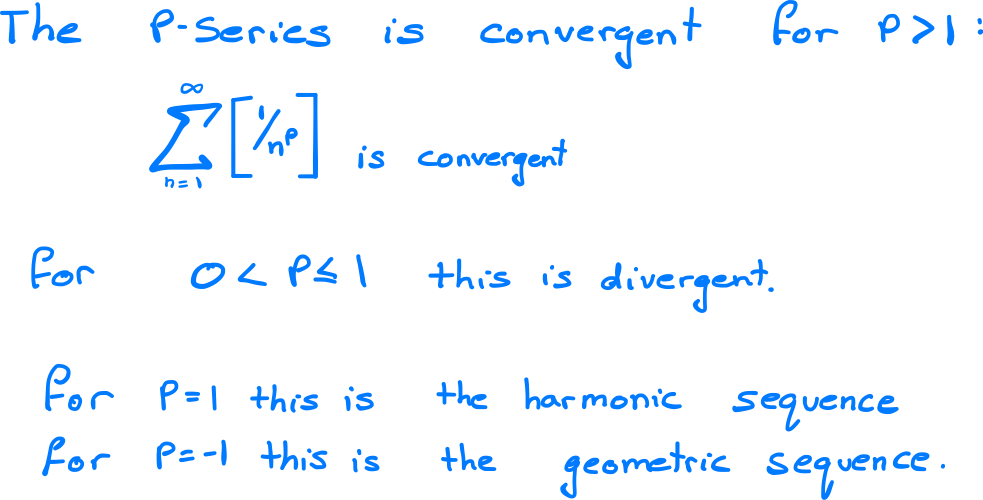 The P-Series is convergent for P>1:
∞
∑ [1/n^p] is convergent
n=1
for 0 < P ≤ 1 this is divergent.
for P=1 this is the harmonic sequence
for P=-1 this is the geometric sequence.